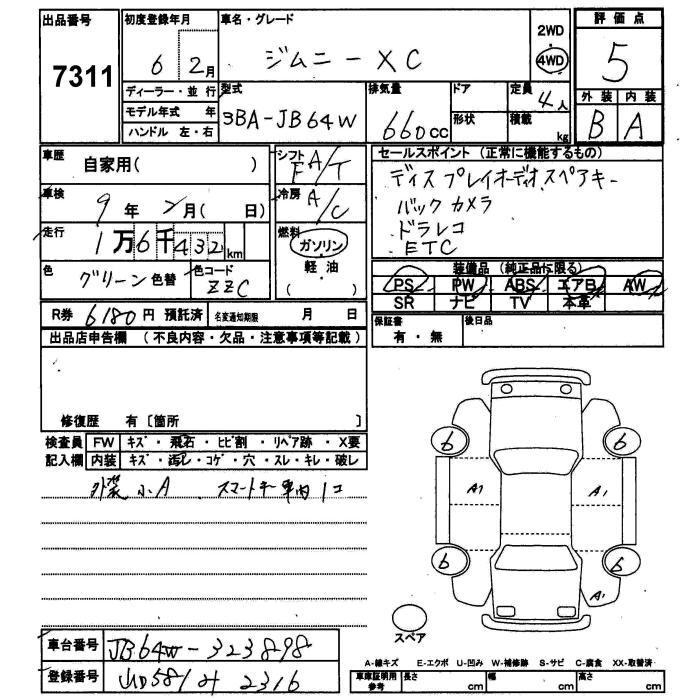 出品番号 7311
初度登録年月 6 2月
車名・グレード ジムニー XC
2WD 4WD
評価点 5
外装 B 内装 A
ディーラー・並行
モデル年式 年
ハンドル 左・右
型式 3BA-JB64W
排気量 660cc
ドア 形状
定員 4人
積載 kg
車歴 自家用( )
シフト FA/T
車検 9年 2月( 日)
冷房 A/C
走行 1万6千432km
燃料 ガソリン 軽油 ( )
色 グリーン 色替
色コード ZZC
R券 6180円 預託済 名変通知期限 月 日
セールスポイント (正常に機能するもの)
ディスプレイオーディオ スペアキー
バックカメラ
ドラレコ
ETC
装備品 (純正品に限る)
PS PW ABS エアB AW
SR ナビ TV 本革
保証書 有・無 後日品
出品店申告欄 (不良内容・欠品・注意事項等記載)
修復歴 有〔箇所 〕
検査員記入欄
FW キズ・飛石・ヒビ割・リペア跡・X要
内装 キズ・汚レ・コゲ・穴・スレ・キレ・破レ
外装小A スマートキー車内1コ
6 6
A1 A1
6 6
A1
スペア
車台番号 JB64W-323898
登録番号 581 み 2316
A-線キズ E-エクボ U-凹み W-補修跡 S-サビ C-腐食 XX-取替済
車庫証明用参考 長さ cm 幅 cm 高さ cm